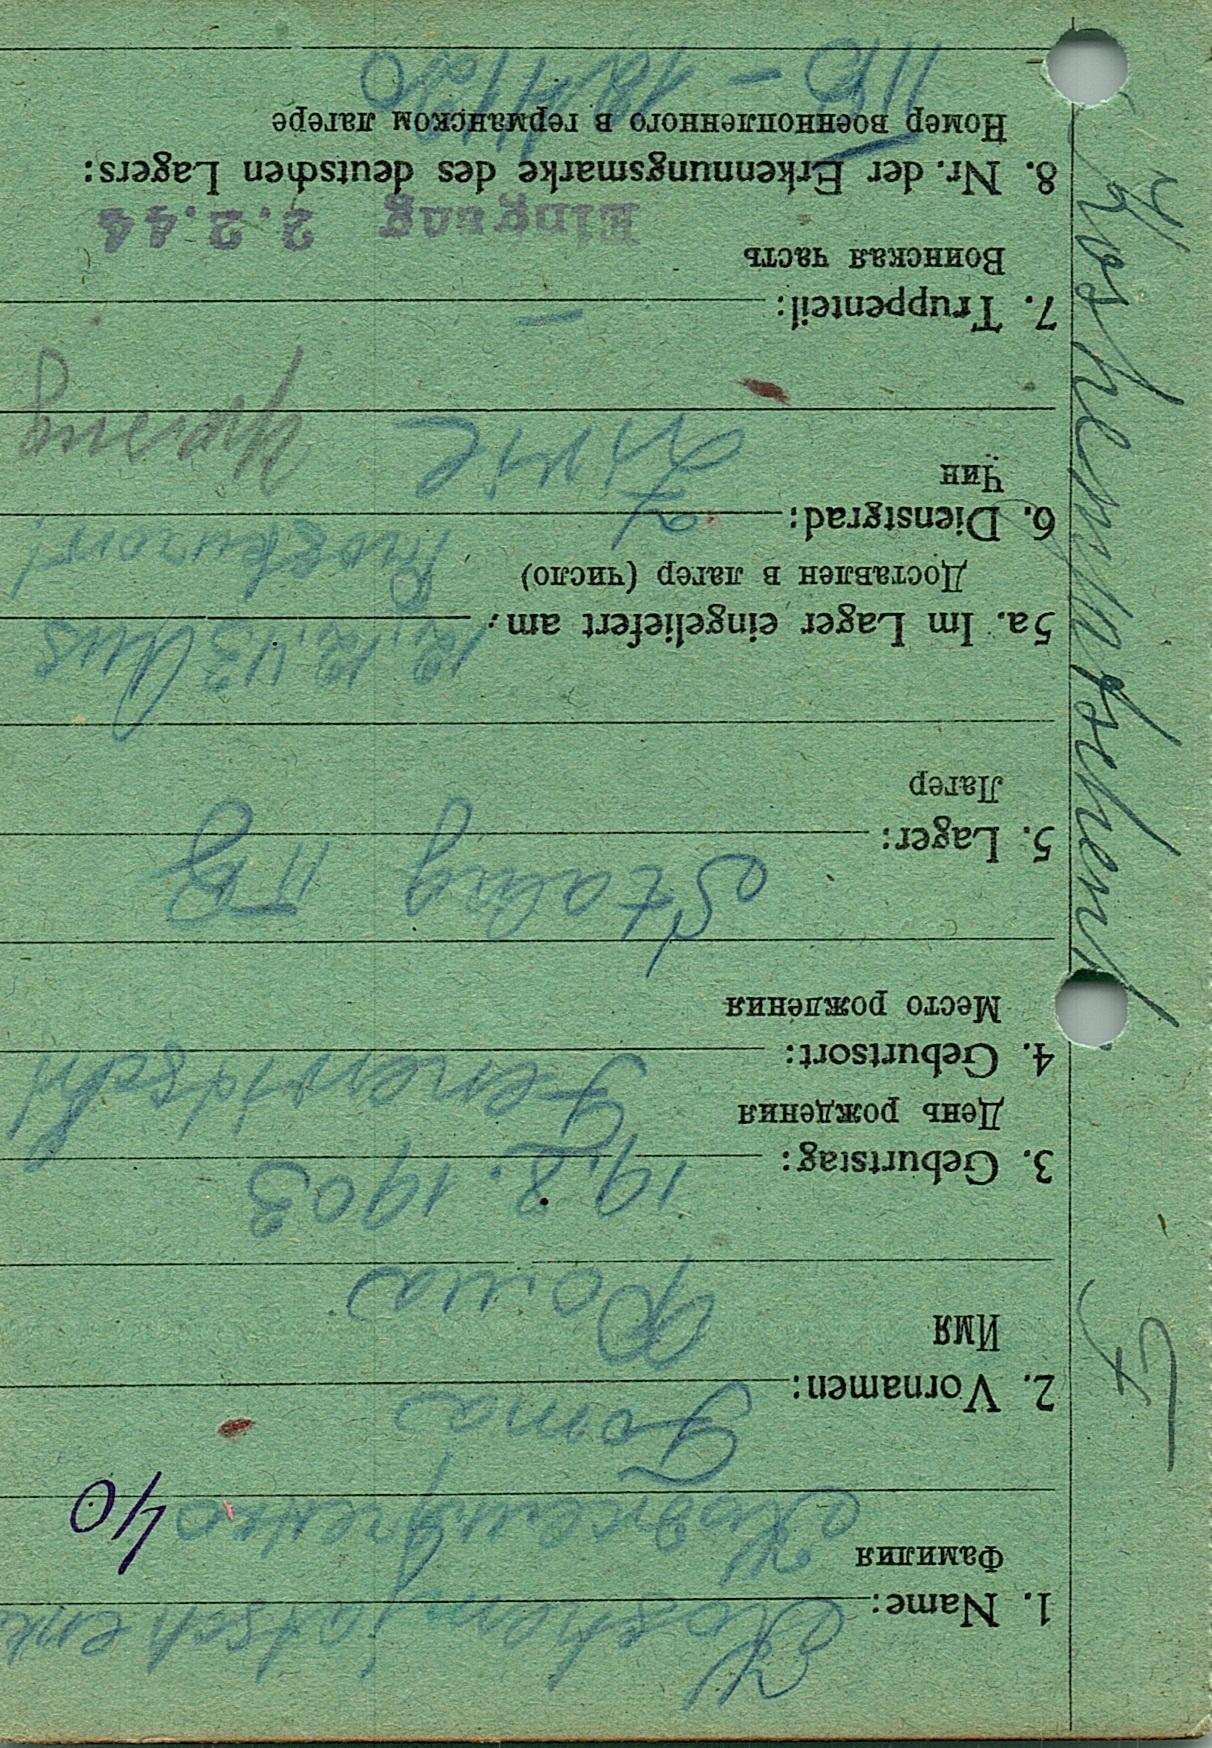 1. Name: Koshemjatschenk
Фамилия
Кожемяченко 40
2. Vornamen: Foma
Имя Фома
3. Geburtstag: 19.8.1903
День рождения
4. Geburtsort:
Место рождения
5. Lager: Stalag II B
Лагер
5a. Im Lager eingeliefert am: 12.12.43 Aus
Доставлен в лагер (число)
6. Dienstgrad: Zivil
Чин
7. Truppenteil: —
Воинская часть
Eingang 2.2.44
8. Nr. der Erkennungsmarke des deutschen Lagers:
Номер военнопленного в германском лагере
F